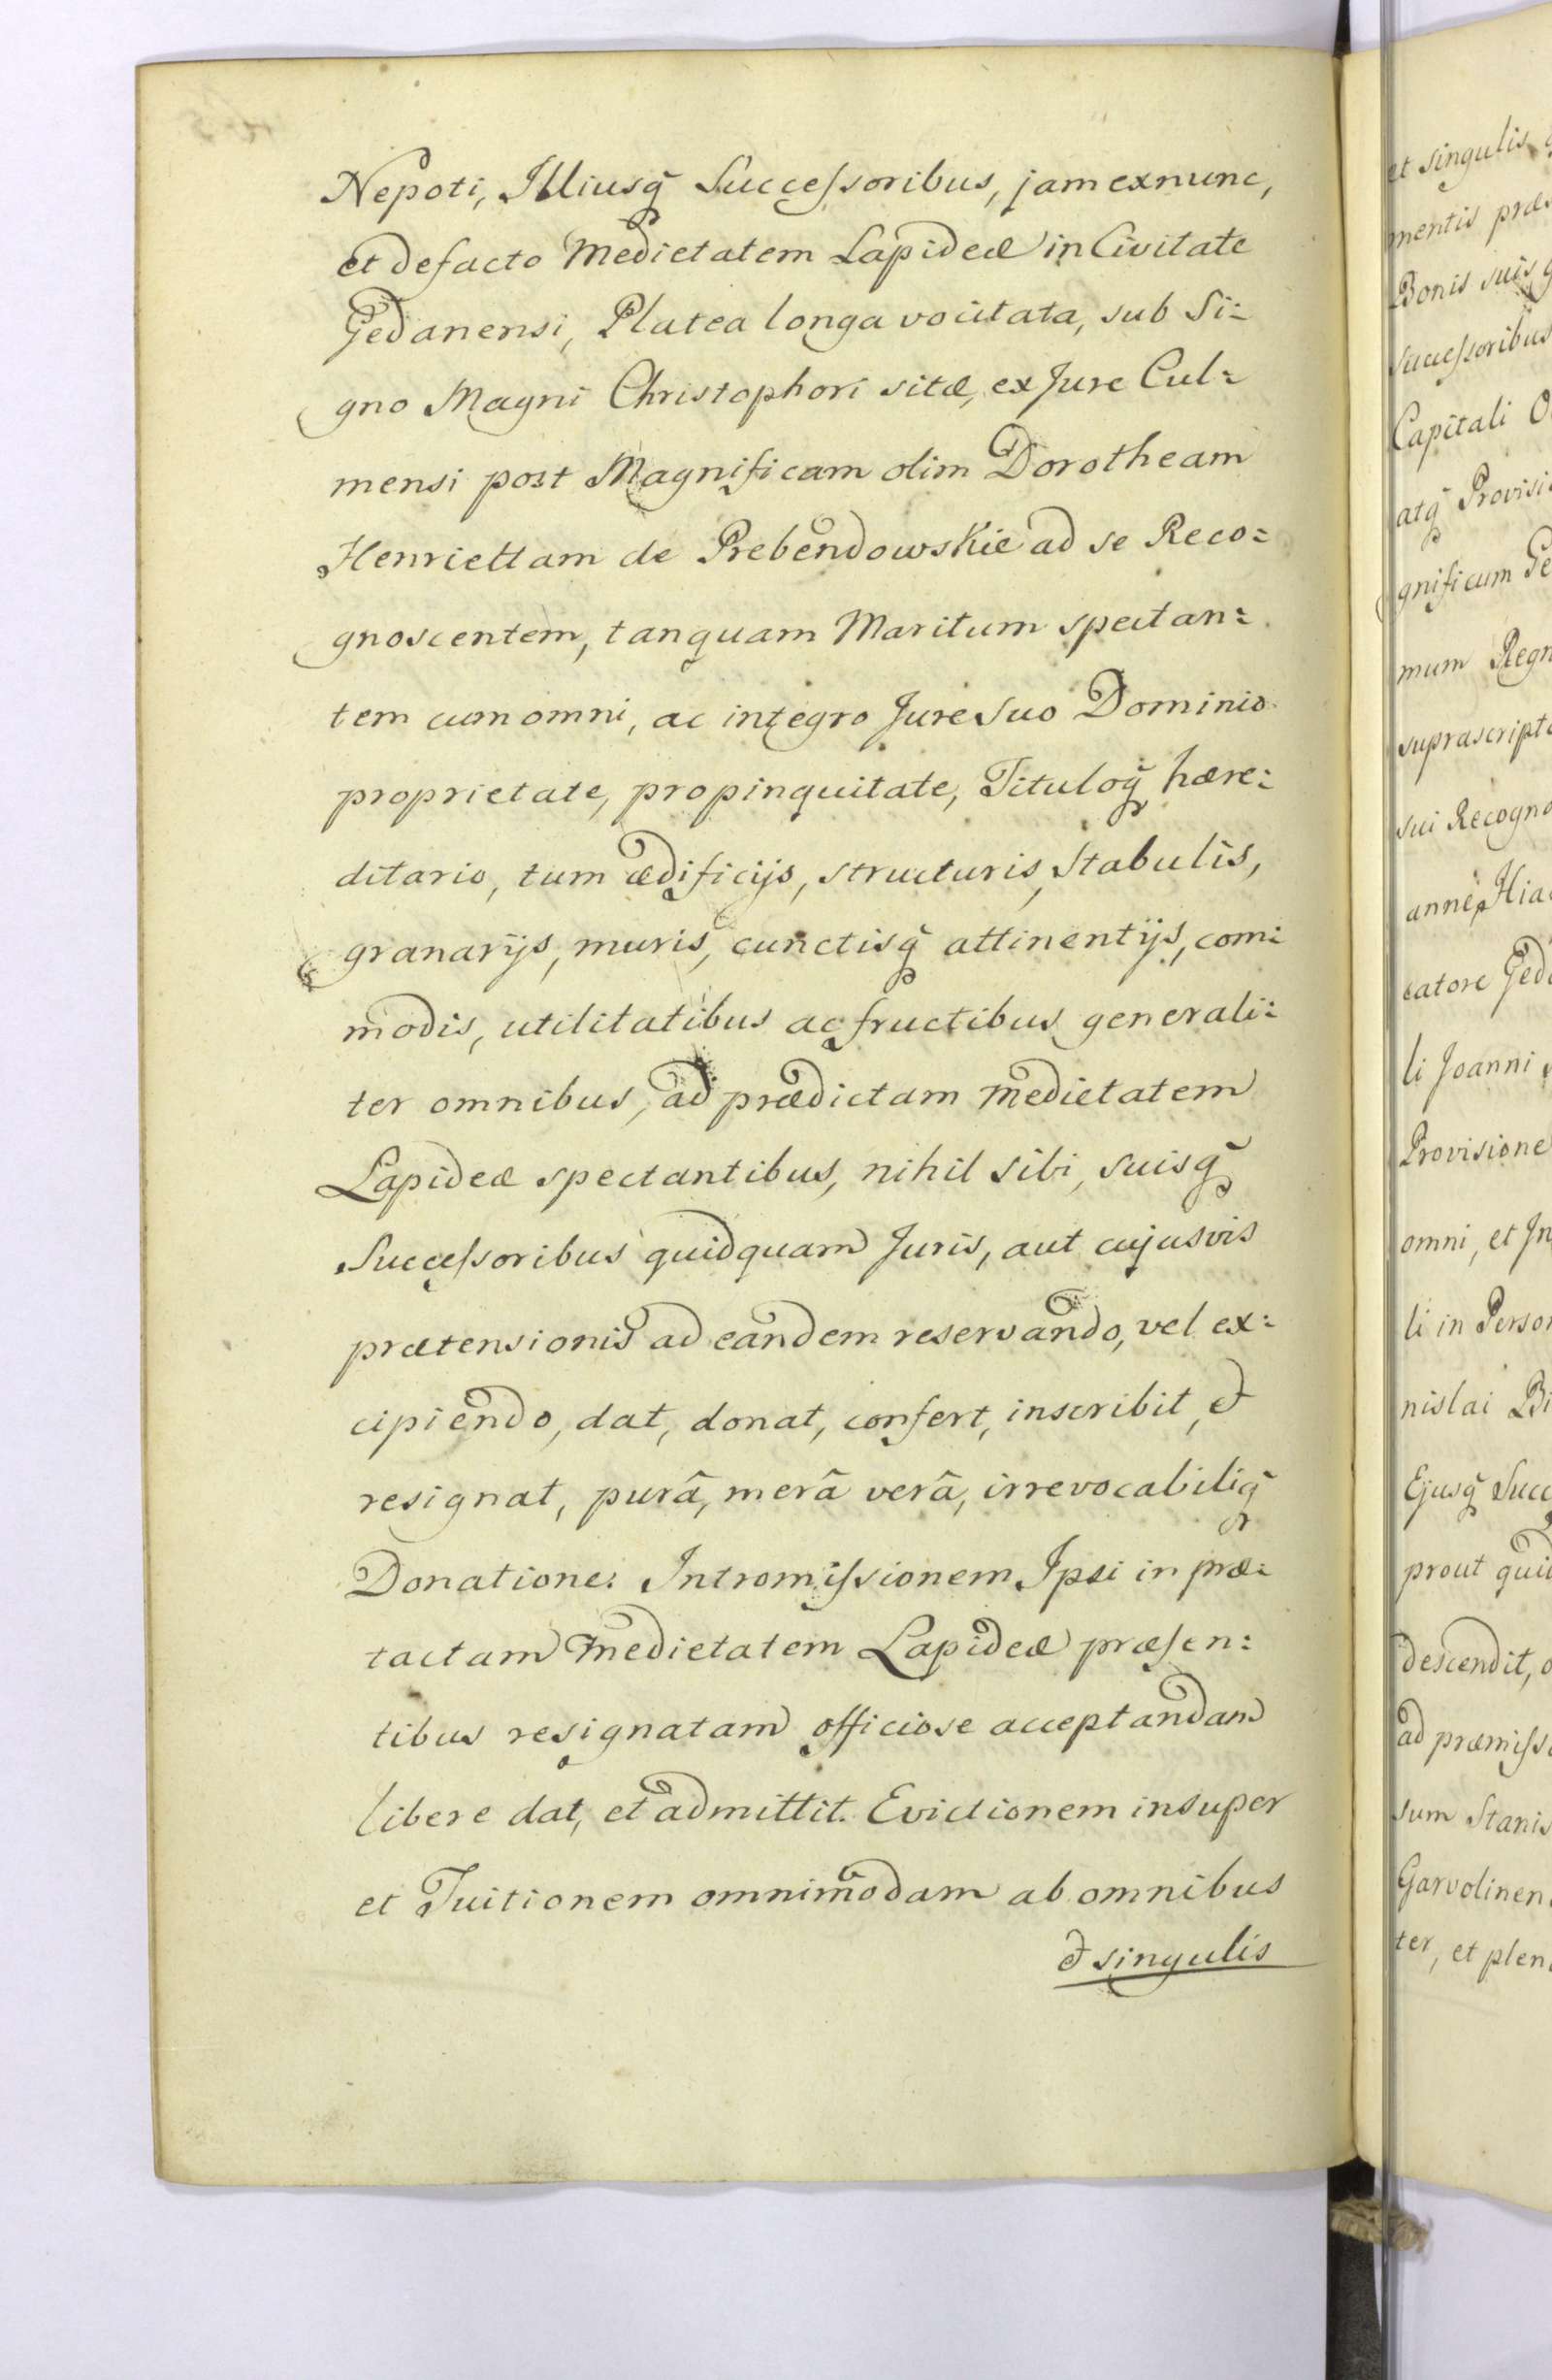 Nepoti, Illiusq̃ Succeſsoribus, jam exnunc,
et de facto Medietatem Lapideæ in Civitate
Gedanensi, Platea longa vocitata, sub Si=
gno Magni Christophori sitæ, ex Jure Cul=
mensi post Magnificam olim Dorotheam
Henriettam de Prebendowskie ad se Reco=
gnoscentem, tanquam Maritum spectan=
tem cum omni, ac integro Jure suo Dominio
proprietate, propinquitate, Tituloq̃ hære=
ditario, tum ædificijs, structuris, stabulis,
granarijs, muris, cunctisq̃ attinentijs, com=
modis, utilitatibus ac fructibus generali=
ter omnibus, ad prædictam Medietatem
Lapideæ spectantibus, nihil sibi, suisq̃
Succeſsoribus quidquam Juris, aut cujusvis
prætensionis ad eandem reservando, vel ex=
cipiendo, dat, donat, confert, inscribit, &
resignat, purâ, merâ verâ, irrevocabiliq̃
Donatione. Intromiſsionem Ipsi in præ=
tactam Medietatem Lapideæ præſen=
tibus resignatam officiose acceptandam
libere dat, et admittit. Evictionem insuper
et Tuitionem omnimodam ab omnibus
& singulis
et singulis
mentis præ
Bonis suis
Succeſsoribus
Capitali
atq̃ Provisi
gnificum Ge
mum Regn
suprascript
sui Recogno
anne Hia
catore Ged
li Joanni
Provisione
omni, et In
li in Person
nislai Bi
Ejusq̃ Succ
prout quid
descendit,
ad præmiſs
sum Stanis
Garvolinen
ter, et plen